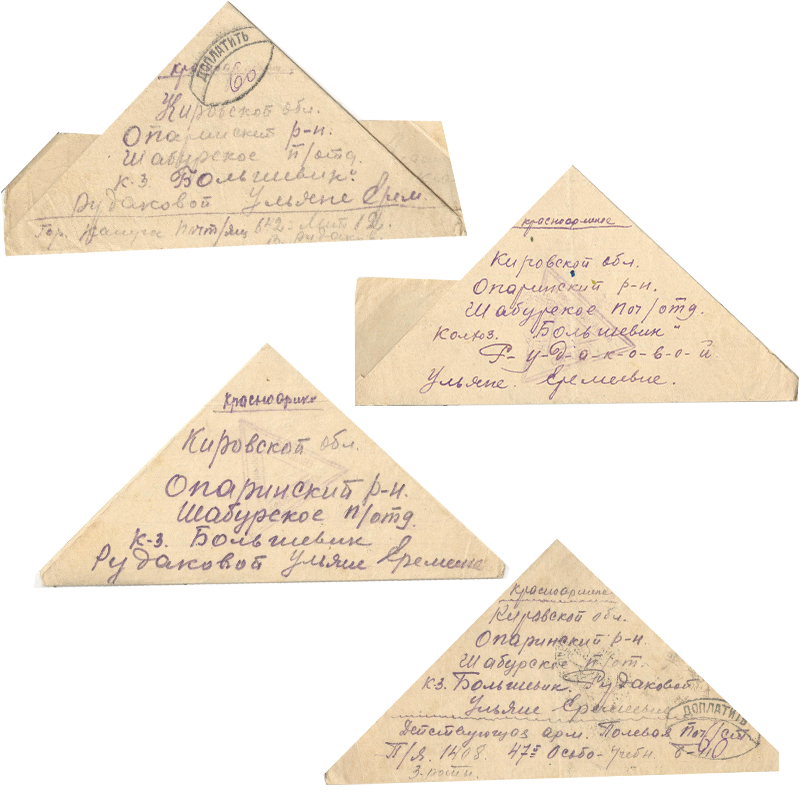 ДОПЛАТИТЬ
60
Кировской обл.
Опаринский р-н.
Шабурское п/отд.
к-з. Большевик"
Рудаковой Ульяне Ерем.
Гор. Калуга почт/ящ 642
красноармие
Кировской обл.
Опаринский р-н.
Шабурское поч/отд.
Колхоз. "Большевик"
Р-у-д-а-к-о-в-о-й
Ульяне. Еремеевне.
Красноарми
Кировской обл.
Опаринский р-н.
Шабурское п/отд.
к-з. Большевик
Рудаковой Ульяне
красноармие
Кировской обл.
Опаринский р-н.
Шабурское п/от.
кз. Большевик. Рудаковой
Ульяне Еремеевне
ДОПЛАТИТЬ
Действующая арм. Полевая
П/Я. 1408. 47й Особо-Учебн.
3. роты.